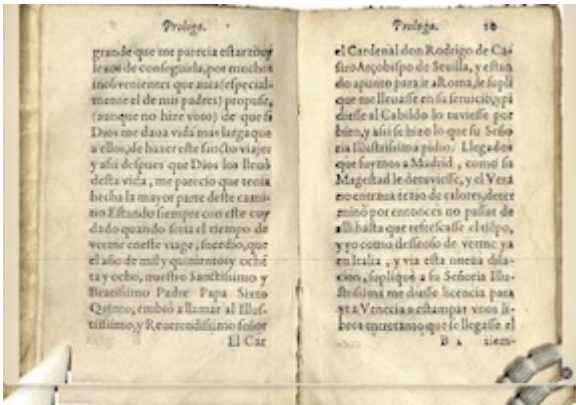 Prologo.
grande que me parecia estar muy
lexos de conseguirla, por muchos
inconvenientes que auia (especial-
mente el de mis padres) propuse,
(aunque no hize voto) de que si
Dios me daua vida mas larga que
a ellos, de hazer este sancto viaje:
y assi despues que Dios los lleuò
desta vida, me parecio que tenia
hecha la mayor parte deste cami-
no. Estando siempre con este cuy
dado quando seria el tiempo de
verme en este viage, sucedio, que
el año de mil y quinientos y oché
ta y ocho, nuestro Sanctissimo y
Beatissimo Padre Papa Sixto
Quinto, embiò a llamar al Illus-
trissimo, y Reuerendissimo señor
El Car
Prologo. 10
el Cardenal don Rodrigo de Ca-
stro Arçobispo de Seuilla, y estan
do apunto para ir a Roma, le supli
que me lleuasse en su seruicio, y pi
diesse al Cabildo lo tuuiesse por
bien, y assi se hizo lo que su Seño
ria Illustrissima pidio. Llegados
que fuymos a Madrid, como su
Magestad le detuuiesse, y el Vera
no entraua
calores, deter
minò por entonces no passar de
alli hasta que refrescasse el tiẽpo,
y yo como desseoso de verme ya
en Italia, y via esta nueua dila-
cion, supliquè a su Señoria Illu-
strissima me diesse licencia para
yr a Venecia a estampar vnos li-
bros entretanto que se llegasse el
B 2 tiem-